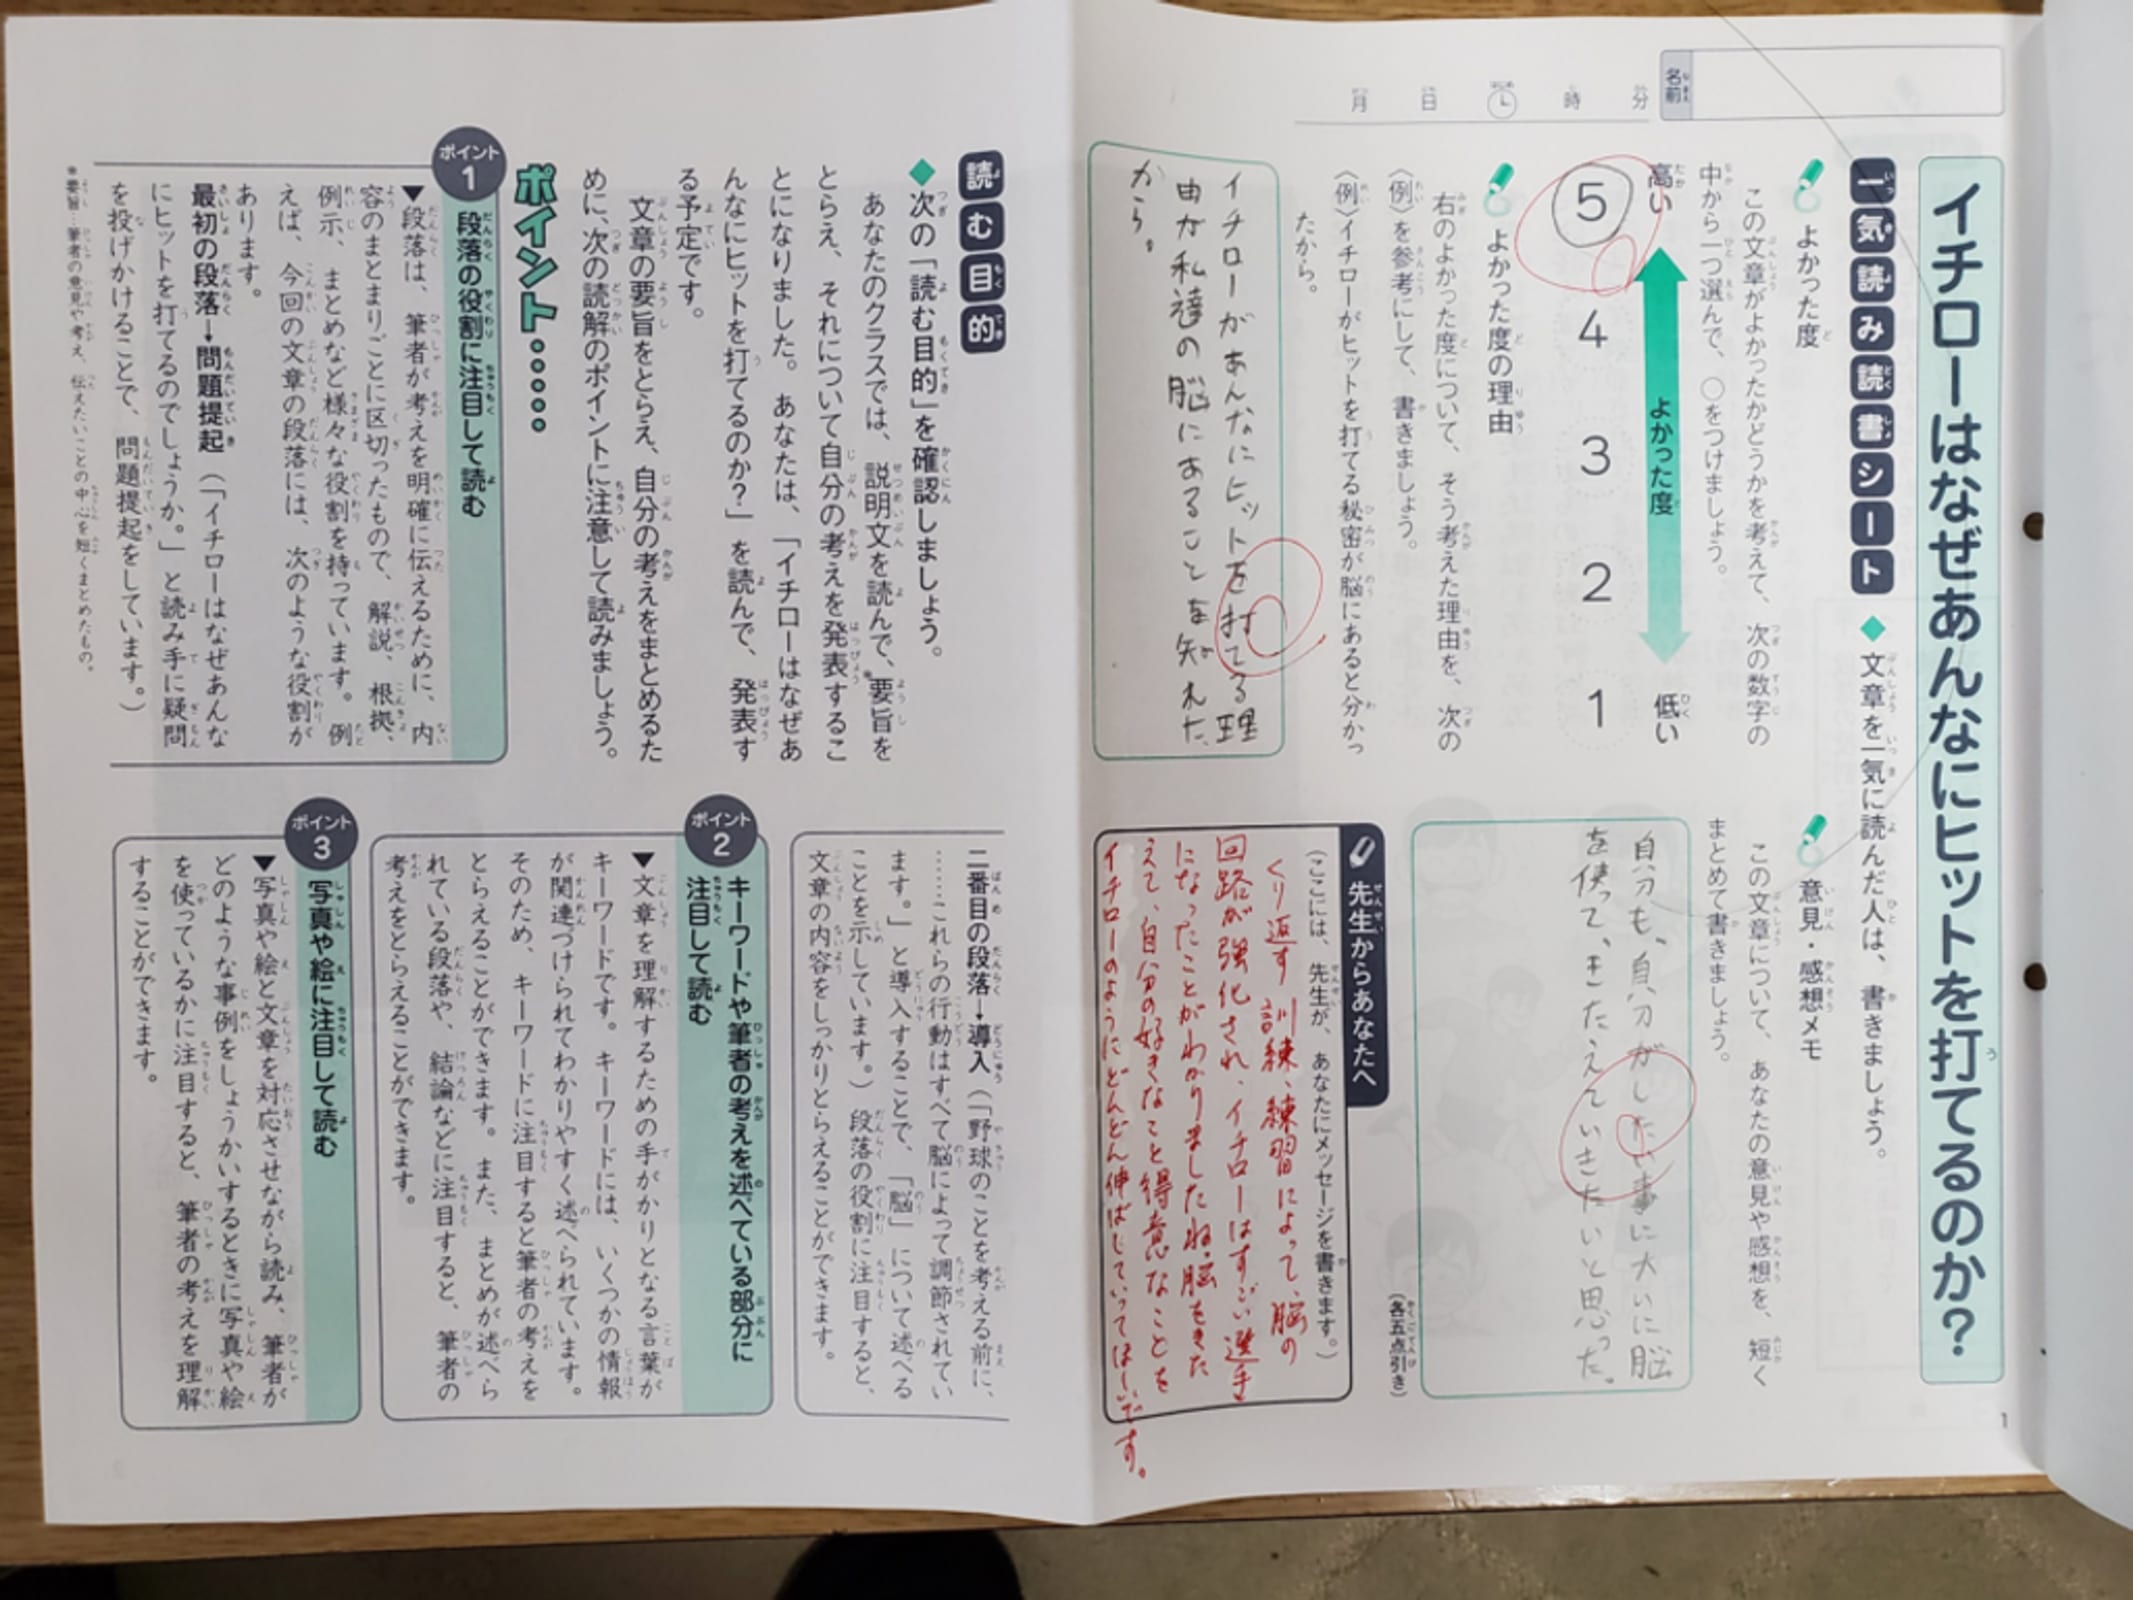 イチローはなぜあんなにヒットを打てるのか?
一気読み読書シート
◆文章を一気に読んだ人は、書きましょう。
名前
月 日 時 分
よかった度
この文章がよかったかどうかを考えて、次の数字の
中から一つ選んで、○をつけましょう。
高い よかった度 低い
5 4 3 2 1
よかった度の理由
右のよかった度について、そう考えた理由を、次の
〈例〉を参考にして、書きましょう。
〈例〉イチローがヒットを打てる秘密が脳にあると分かっ
たから。
イチローがあんなにヒットを打てる理
由が私達の脳にあることを知れた
から。
意見・感想メモ
この文章について、あなたの意見や感想を、短く
まとめて書きましょう。
自分も、自分がしたい事に大いに脳
を使って、きたえていきたいと思った。
(各五点引き)
先生からあなたへ
(ここには、先生が、あなたにメッセージを書きます。)
くり返す訓練、練習によって、脳の
回路が強化され、イチローはすごい選手
になったことがわかりましたね。脳をきた
えて、自分の好きなこと得意なことを
イチローのようにどんどん伸ばしていってほしいです。
1
読む目的
◆次の「読む目的」を確認しましょう。
あなたのクラスでは、説明文を読んで、要旨を
とらえ、それについて自分の考えを発表するこ
とになりました。あなたは、「イチローはなぜあ
んなにヒットを打てるのか?」を読んで、発表す
る予定です。
文章の要旨をとらえ、自分の考えをまとめるた
めに、次の読解のポイントに注意して読みましょう。
ポイント……
ポイント1
段落の役割に注目して読む
▼段落は、筆者が考えを明確に伝えるために、内
容のまとまりごとに区切ったもので、解説、根拠、
例示、まとめなど様々な役割を持っています。例
えば、今回の文章の段落には、次のような役割が
あります。
最初の段落→問題提起(「イチローはなぜあんな
にヒットを打てるのでしょうか。」と読み手に疑問
を投げかけることで、問題提起をしています。)
*要旨…筆者の意見や考え、伝えたいことの中心を短くまとめたもの。
二番目の段落→導入(「野球のことを考える前に、
……これらの行動はすべて脳によって調節されてい
ます。」と導入することで、「脳」について述べる
ことを示しています。)段落の役割に注目すると、
文章の内容をしっかりとらえることができます。
ポイント2
キーワードや筆者の考えを述べている部分に
注目して読む
▼文章を理解するための手がかりとなる言葉が
キーワードです。キーワードには、いくつかの情報
が関連づけられてわかりやすく述べられています。
そのため、キーワードに注目すると筆者の考えを
とらえることができます。また、まとめが述べら
れている段落や、結論などに注目すると、筆者の
考えをとらえることができます。
ポイント3
写真や絵に注目して読む
▼写真や絵と文章を対応させながら読み、筆者が
どのような事例をしょうかいするときに写真や絵
を使っているかに注目すると、筆者の考えを理解
することができます。